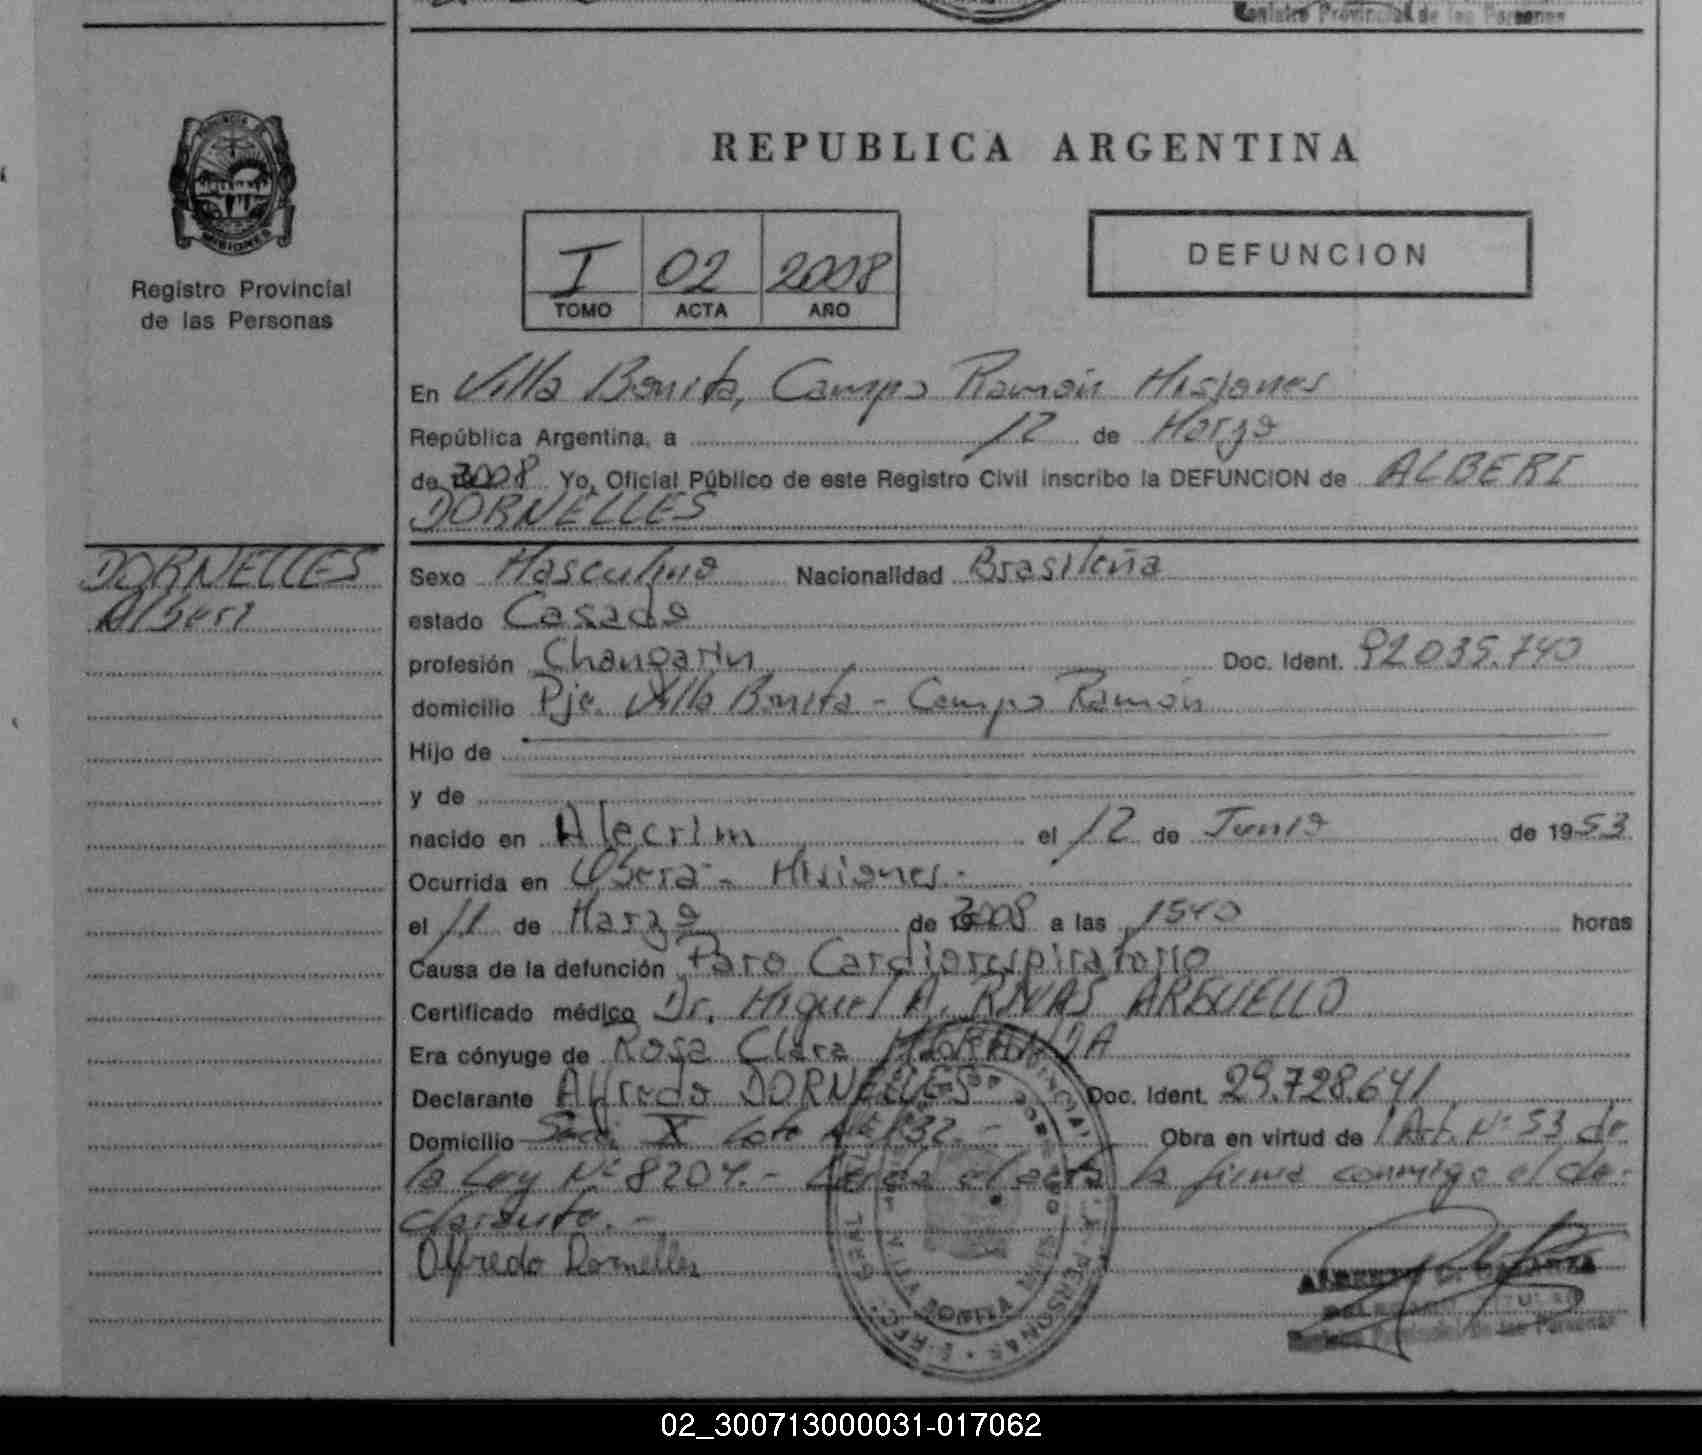 Registro Provincial de las Personas
REPUBLICA ARGENTINA
PROVINCIA DE
MISIONES
Registro Provincial
de las Personas
I 02 2008
TOMO ACTA AÑO
DEFUNCION
En Villa Bonita, Campo Ramón Misiones
República Argentina, a 12 de Marzo
de 2008 Yo, Oficial Público de este Registro Civil inscribo la DEFUNCION de ALBERI
DORNELLES
DORNELLES
Alberi
Sexo Masculino Nacionalidad Brasileña
estado Casado
profesión Changarin Doc. Ident. 92.035.740
domicilio Pje. Villa Bonita - Campo Ramón
Hijo de
y de
nacido en Alecrim el 12 de Junio de 1953
Ocurrida en Oberá - Misiones.-
el 11 de Marzo de 2008 a las 1540 horas
Causa de la defunción Paro Cardiorespiratorio
Certificado médico Dr. Miguel A. RIVAS ARGUELLO
Era cónyuge de Rosa Clara
Declarante Alfredo DORNELLES Doc. Ident. 29.728.641
Domicilio Secc. X Lote Nº 132.- Obra en virtud de l'Art. Nº 53 de
la Ley Nº 8204.- Leída el acta la firma conmigo el de-
clarante.-
Alfredo Dornelles
VILLA BONITA
Registro Provincial de las Personas
02_300713000031-017062